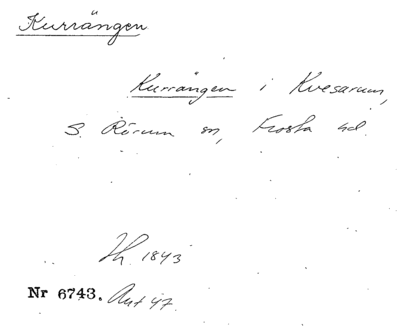 Kurrängen
Kurrängen i Kvesarum,
S. Rörum sn, Frosta hd.
Th. 1843
Nr 6743. Ant 47.